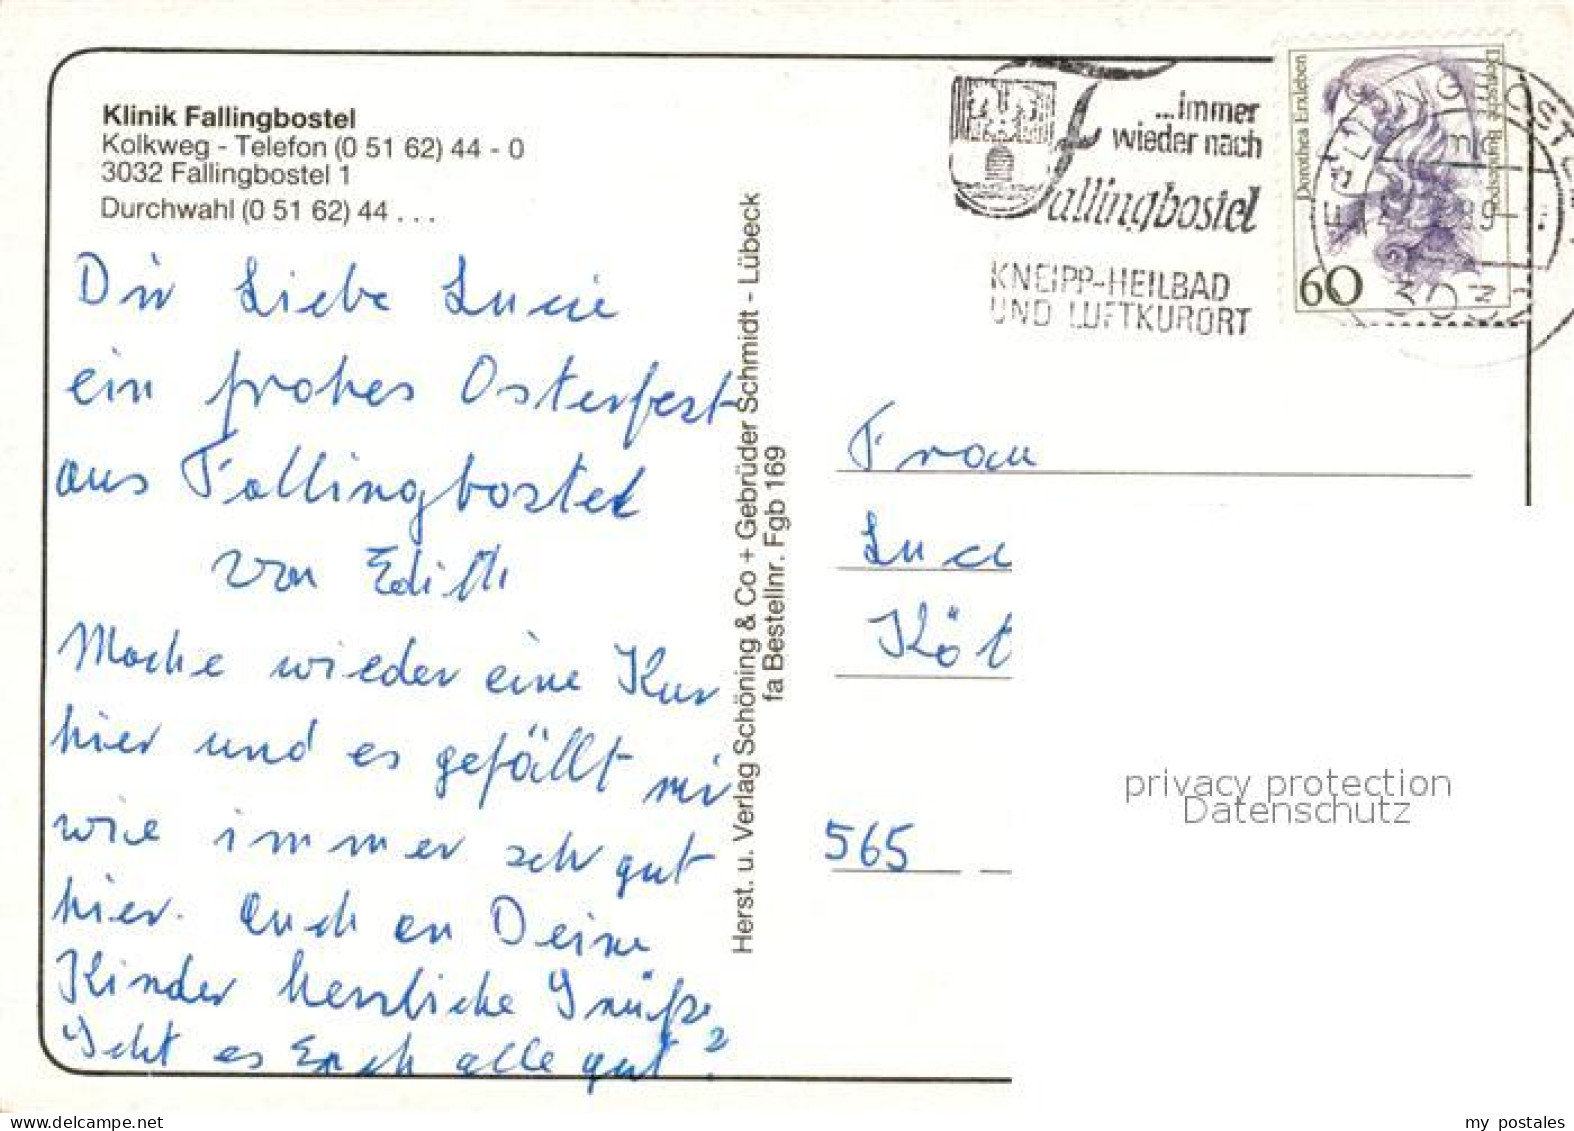 Klinik Fallingbostel
Kolkweg - Telefon (0 51 62) 44 - 0
3032 Fallingbostel 1
Durchwahl (0 51 62) 44 . . .
Dir Liebe Lucie
ein frohes Osterfest
aus Fallingbostel
von Edith
Mache wieder eine Kur
hier und es gefällt mir
wie immer sehr gut
hier. Auch an Deine
Kinder herzliche Grüße
Geht es Euch alle gut?
Herst. u. Verlag Schöning & Co + Gebrüder Schmidt - Lübeck
fa Bestellnr. Fgb 169
...immer
wieder nach
Fallingbostel
KNEIPP-HEILBAD
UND LUFTKURORT
Dorothea Erxleben
Deutsche Bundespost
60
3032
Frau
Luci
Köt
565
privacy protection
Datenschutz
my postales